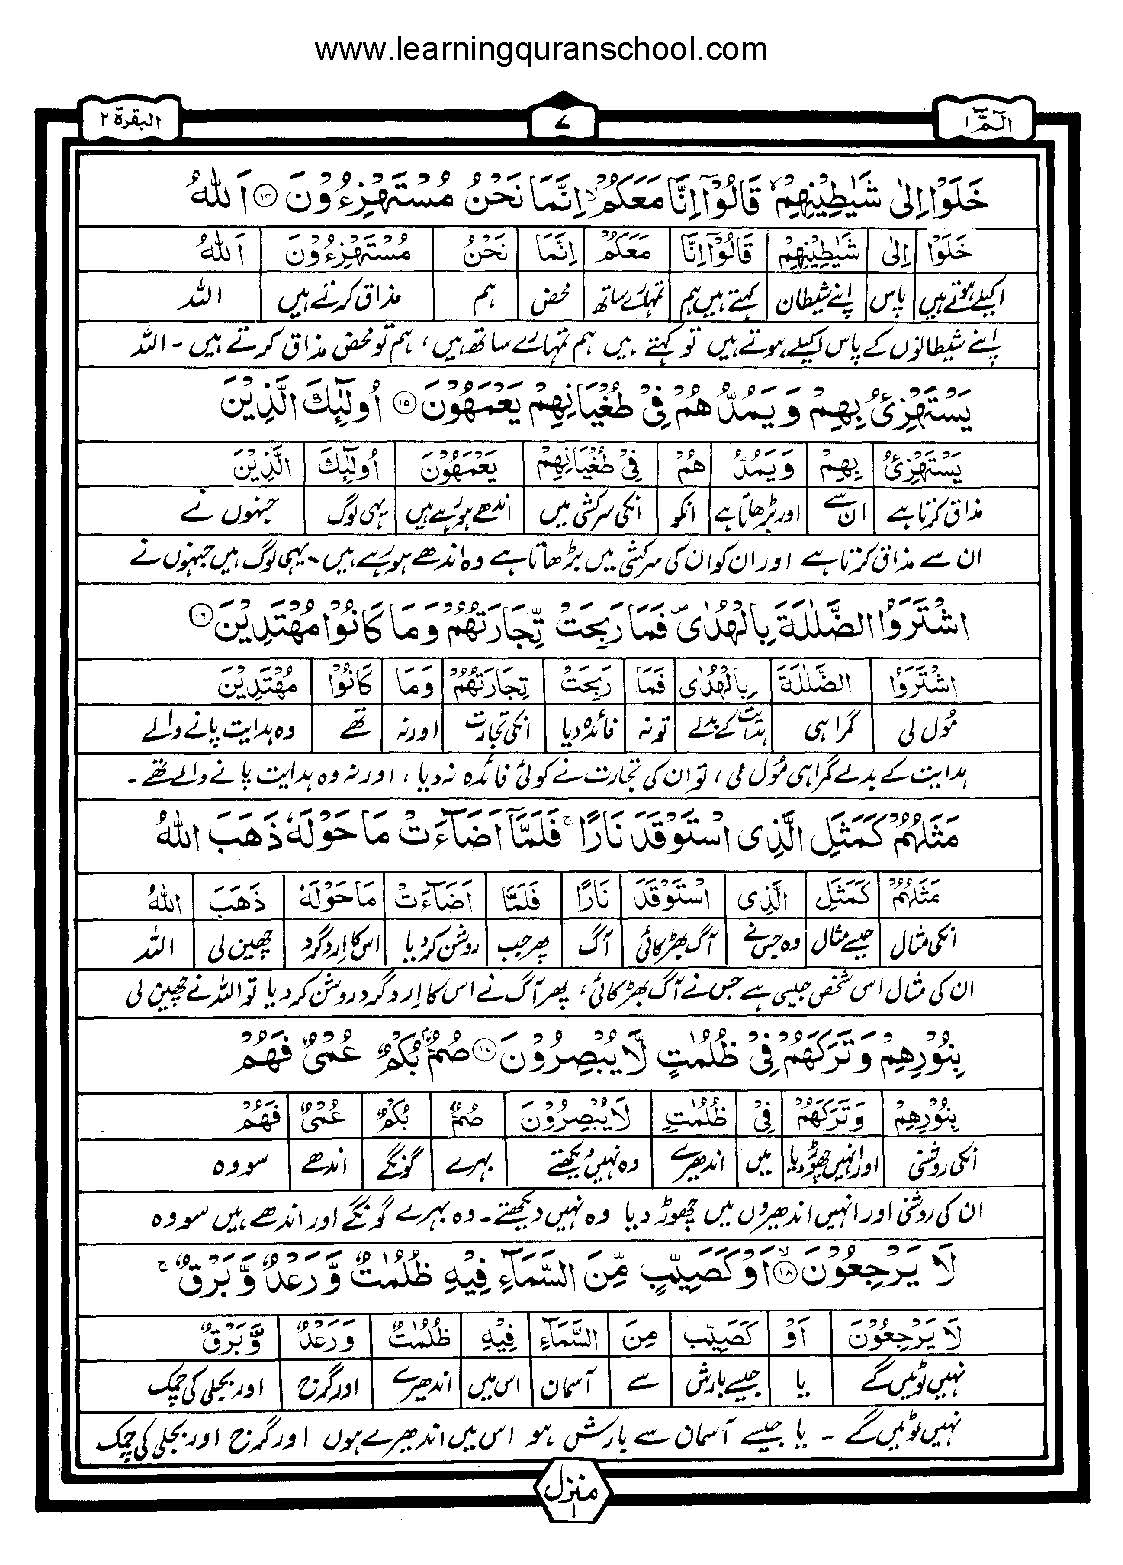 www.learningquranschool.com
الٓمّٓ ١ ٧ البقرة ٢
خَلَوْا اِلٰى شَيٰطِيْنِهِمْ ۙ قَالُوْٓا اِنَّا مَعَكُمْ ۙ اِنَّمَا نَحْنُ مُسْتَهْزِءُوْنَ ۝۱۴ اَللّٰهُ
خَلَوْا اِلٰى شَيٰطِيْنِهِمْ قَالُوْٓا اِنَّا مَعَكُمْ اِنَّمَا نَحْنُ مُسْتَهْزِءُوْنَ اَللّٰهُ
اکیلے ہوتے ہیں پاس اپنے شیطان کہتے ہیں ہم تمہارے ساتھ محض ہم مذاق کرتے ہیں اللہ
اپنے شیطانوں کے پاس اکیلے ہوتے ہیں تو کہتے ہیں ہم تمہارے ساتھ ہیں، ہم تو محض مذاق کرتے ہیں۔ اللہ
يَسْتَهْزِئُ بِهِمْ وَيَمُدُّهُمْ فِىْ طُغْيَانِهِمْ يَعْمَهُوْنَ ۝۱۵ اُولٰٓئِكَ الَّذِيْنَ
يَسْتَهْزِئُ بِهِمْ وَيَمُدُّ هُمْ فِىْ طُغْيَانِهِمْ يَعْمَهُوْنَ اُولٰٓئِكَ الَّذِيْنَ
مذاق کرتا ہے ان سے اور بڑھاتا ہے انکو انکی سرکشی میں اندھے ہو رہے ہیں یہی لوگ جنہوں نے
ان سے مذاق کرتا ہے اور ان کو ان کی سرکشی میں بڑھاتا ہے وہ اندھے ہو رہے ہیں۔ یہی لوگ ہیں جنہوں نے
اشْتَرَوُا الضَّلٰلَةَ بِالْهُدٰى ۪ فَمَا رَبِحَتْ تِّجَارَتُهُمْ وَمَا كَانُوْا مُهْتَدِيْنَ ۝
اشْتَرَوُا الضَّلٰلَةَ بِالْهُدٰى فَمَا رَبِحَتْ تِجَارَتُهُمْ وَمَا كَانُوْا مُهْتَدِيْنَ
مول لی گمراہی ہدایت کے بدلے تو نہ فائدہ دیا انکی تجارت اور نہ تھے وہ ہدایت پانے والے
ہدایت کے بدلے گمراہی مول لی، تو ان کی تجارت نے کوئی فائدہ نہ دیا، اور نہ وہ ہدایت پانے والے تھے۔
مَثَلُهُمْ كَمَثَلِ الَّذِى اسْتَوْقَدَ نَارًا ۚ فَلَمَّآ اَضَآءَتْ مَاحَوْلَهٗ ذَهَبَ اللّٰهُ
مَثَلُهُمْ كَمَثَلِ الَّذِى اسْتَوْقَدَ نَارًا فَلَمَّآ اَضَآءَتْ مَاحَوْلَهٗ ذَهَبَ اللّٰهُ
انکی مثال جیسے مثال وہ جس نے آگ بھڑکائی آگ پھر جب روشن کر دیا اس کا اردگرد چھین لی اللہ
ان کی مثال اس شخص جیسی ہے جس نے آگ بھڑکائی، پھر آگ نے اس کا اردگرد روشن کر دیا تو اللہ نے چھین لی
بِنُوْرِهِمْ وَتَرَكَهُمْ فِىْ ظُلُمٰتٍ لَّا يُبْصِرُوْنَ ۝۱۷ صُمٌّۢ بُكْمٌ عُمْىٌ فَهُمْ
بِنُوْرِهِمْ وَتَرَكَهُمْ فِىْ ظُلُمٰتٍ لَا يُبْصِرُوْنَ صُمٌّ بُكْمٌ عُمْىٌ فَهُمْ
انکی روشنی اور انہیں چھوڑ دیا میں اندھیرے وہ نہیں دیکھتے بہرے گونگے اندھے سو وہ
ان کی روشنی اور انہیں اندھیروں میں چھوڑ دیا وہ نہیں دیکھتے۔ وہ بہرے گونگے اور اندھے ہیں سو وہ
لَا يَرْجِعُوْنَ ۝۱۸ۙ اَوْ كَصَيِّبٍ مِّنَ السَّمَآءِ فِيْهِ ظُلُمٰتٌ وَّرَعْدٌ وَّبَرْقٌ ۚ
لَا يَرْجِعُوْنَ اَوْ كَصَيِّبٍ مِنَ السَّمَآءِ فِيْهِ ظُلُمٰتٌ وَرَعْدٌ وَّبَرْقٌ
نہیں لوٹیں گے یا جیسے بارش سے آسمان اس میں اندھیرے اور گرج اور بجلی کی چمک
نہیں لوٹیں گے۔ یا جیسے آسمان سے بارش ہو اس میں اندھیرے ہوں اور گرج اور بجلی کی چمک
منزل
١